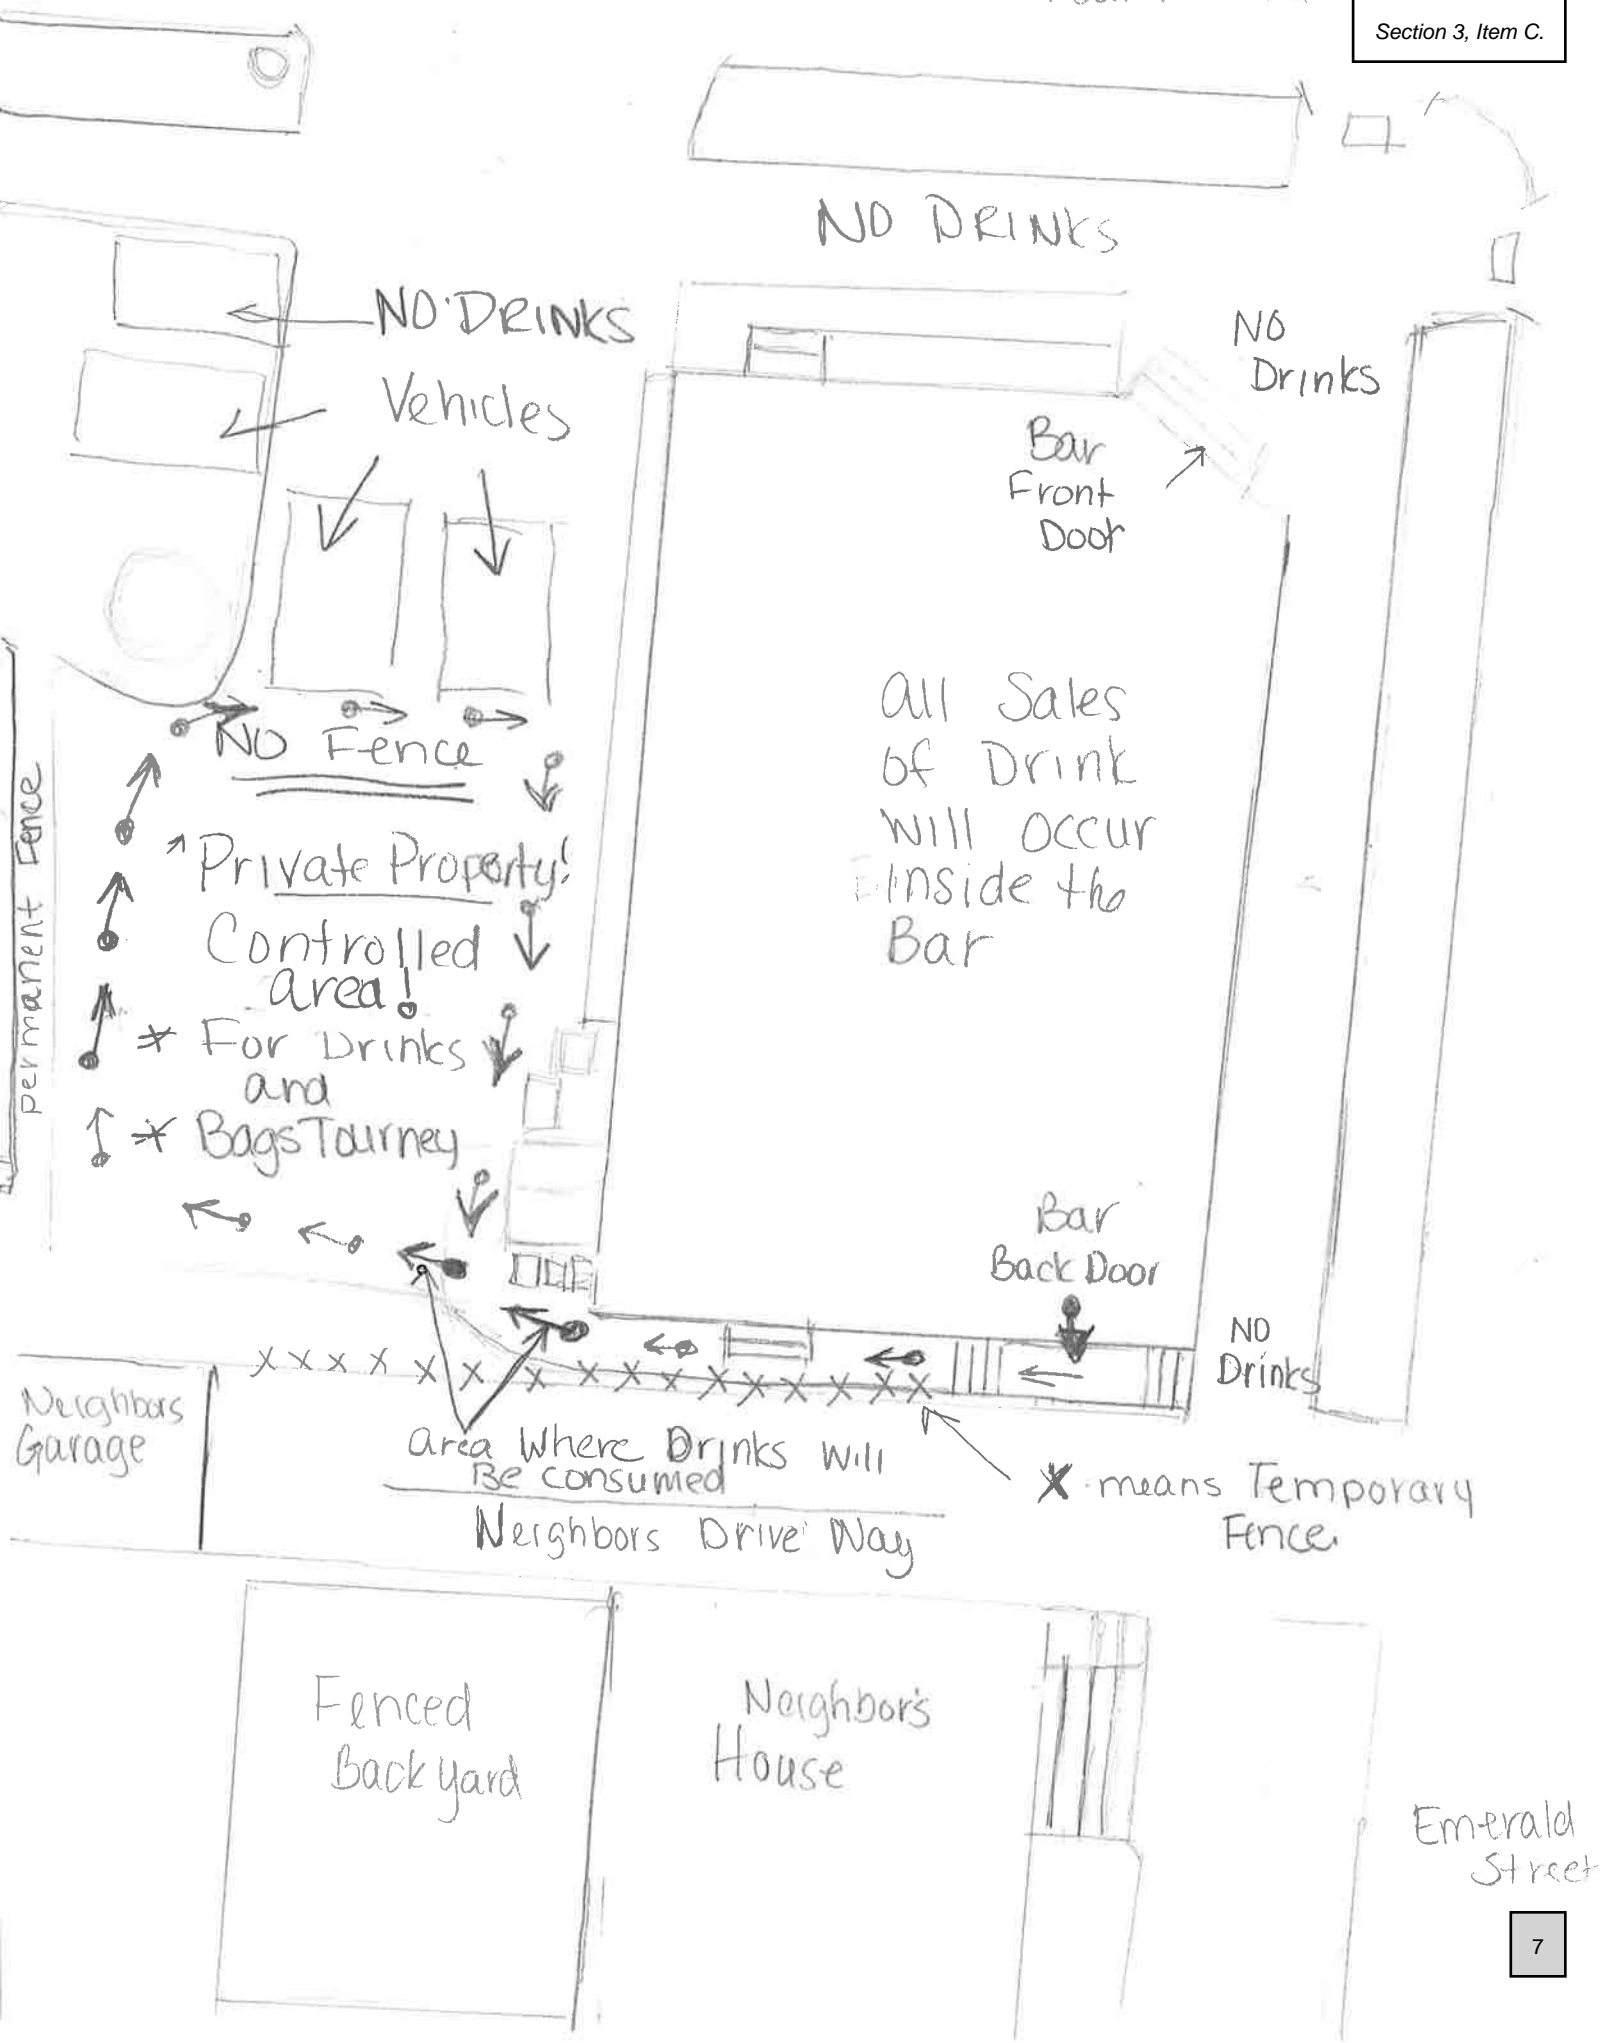 Section 3, Item C.
NO DRINKS
NO DRINKS
Vehicles
NO
Drinks
Bar
Front
Door
All Sales
of Drink
Will occur
Inside the
Bar
NO Fence
Private Property!
Controlled
area!
* For Drinks
and
* Bags Tourney
permanent Fence
Bar
Back Door
NO
Drinks
XXXXXXXXXXXXXXXXX
Neighbors
Garage
area Where Drinks Will
Be consumed
X means Temporary
Fence
Neighbors Drive Way
Fenced
Back yard
Neighbor's
House
Emerald
Street
7